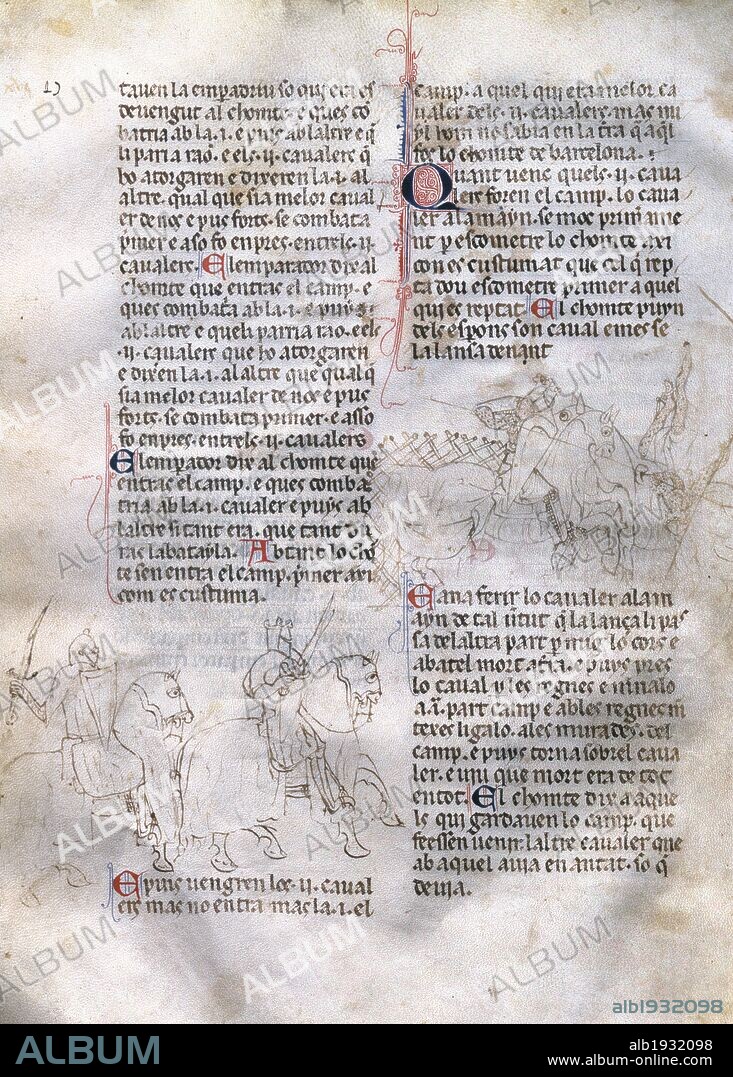 tauen la emperadriu so qui era es
deuengut al chomte e ques co
batria ab la .i. e puys ab laltre e q̄
li partia rao. e els .ij. caualers q̄
ho atorgaren e dixeren la .i. al
altre. qual que sia melor caual
er de nos e pus forts. se combata
primer e aso fo en pres. entrels .ij.
caualers. El emparator dix al
chomte que entras el camp. e
ques combata ab la .i. e puys
ab laltre e que li partria rao. e els
.ij. caualers que ho atorgaren
e dixeren la .i. al altre que qual q̄
sia melor caualer de nos e pus
forts. se combata primer. e asso
fo en pres. entrels .ij. caualers
El emperador dix al chomte que
entras el camp. e ques comba
tria ab la .i. caualer e puys ab
laltre si tant era. que tant du
ras la batayla. Ab tant lo cho
te sen entra el camp. primer axi
com es custuma.
E puys uengren los .ij. caual
ers mas no entra mas la .i. el
camp. a quel qui era melor ca
ualer dels .ij. caualers. mas nu
yl hom no sabia en la t̄ra q̄ aq̄l
fos lo chomte de barcelona.
Quant uenc quels .ij. caua
lers foren el camp. lo caua
ler alamayn. se moc primerame
nt p̱ escometre lo chomte. axi
con es custumat que cel q̄ rep
ta dou escometre primer a quel
qui es reptat. El chomte puyn
dels esperons son caual e mes se
la lansa denant
E ana ferir lo caualer alam
ayn de tal uirtut q̄ la lança li pa
sa de laltra part per mig lo cors e
abatel mort a t̄ra. e puys pres
lo caual p̱ les regnes e menalo
a .i. part camp e ab les regnes m
texes ligalo. ales murades. del
camp. e puys torna sobrel caua
ler. e uiu que mort era de tot
en tot. El chomte dix a aque
ls qui gardauen lo camp. que
feessen uenir laltre caualer que
ab aquel auia en antat. so q̄
deuia.
ALBUM
alb1932098
ALBUM
alb1932098
www.album-online.com